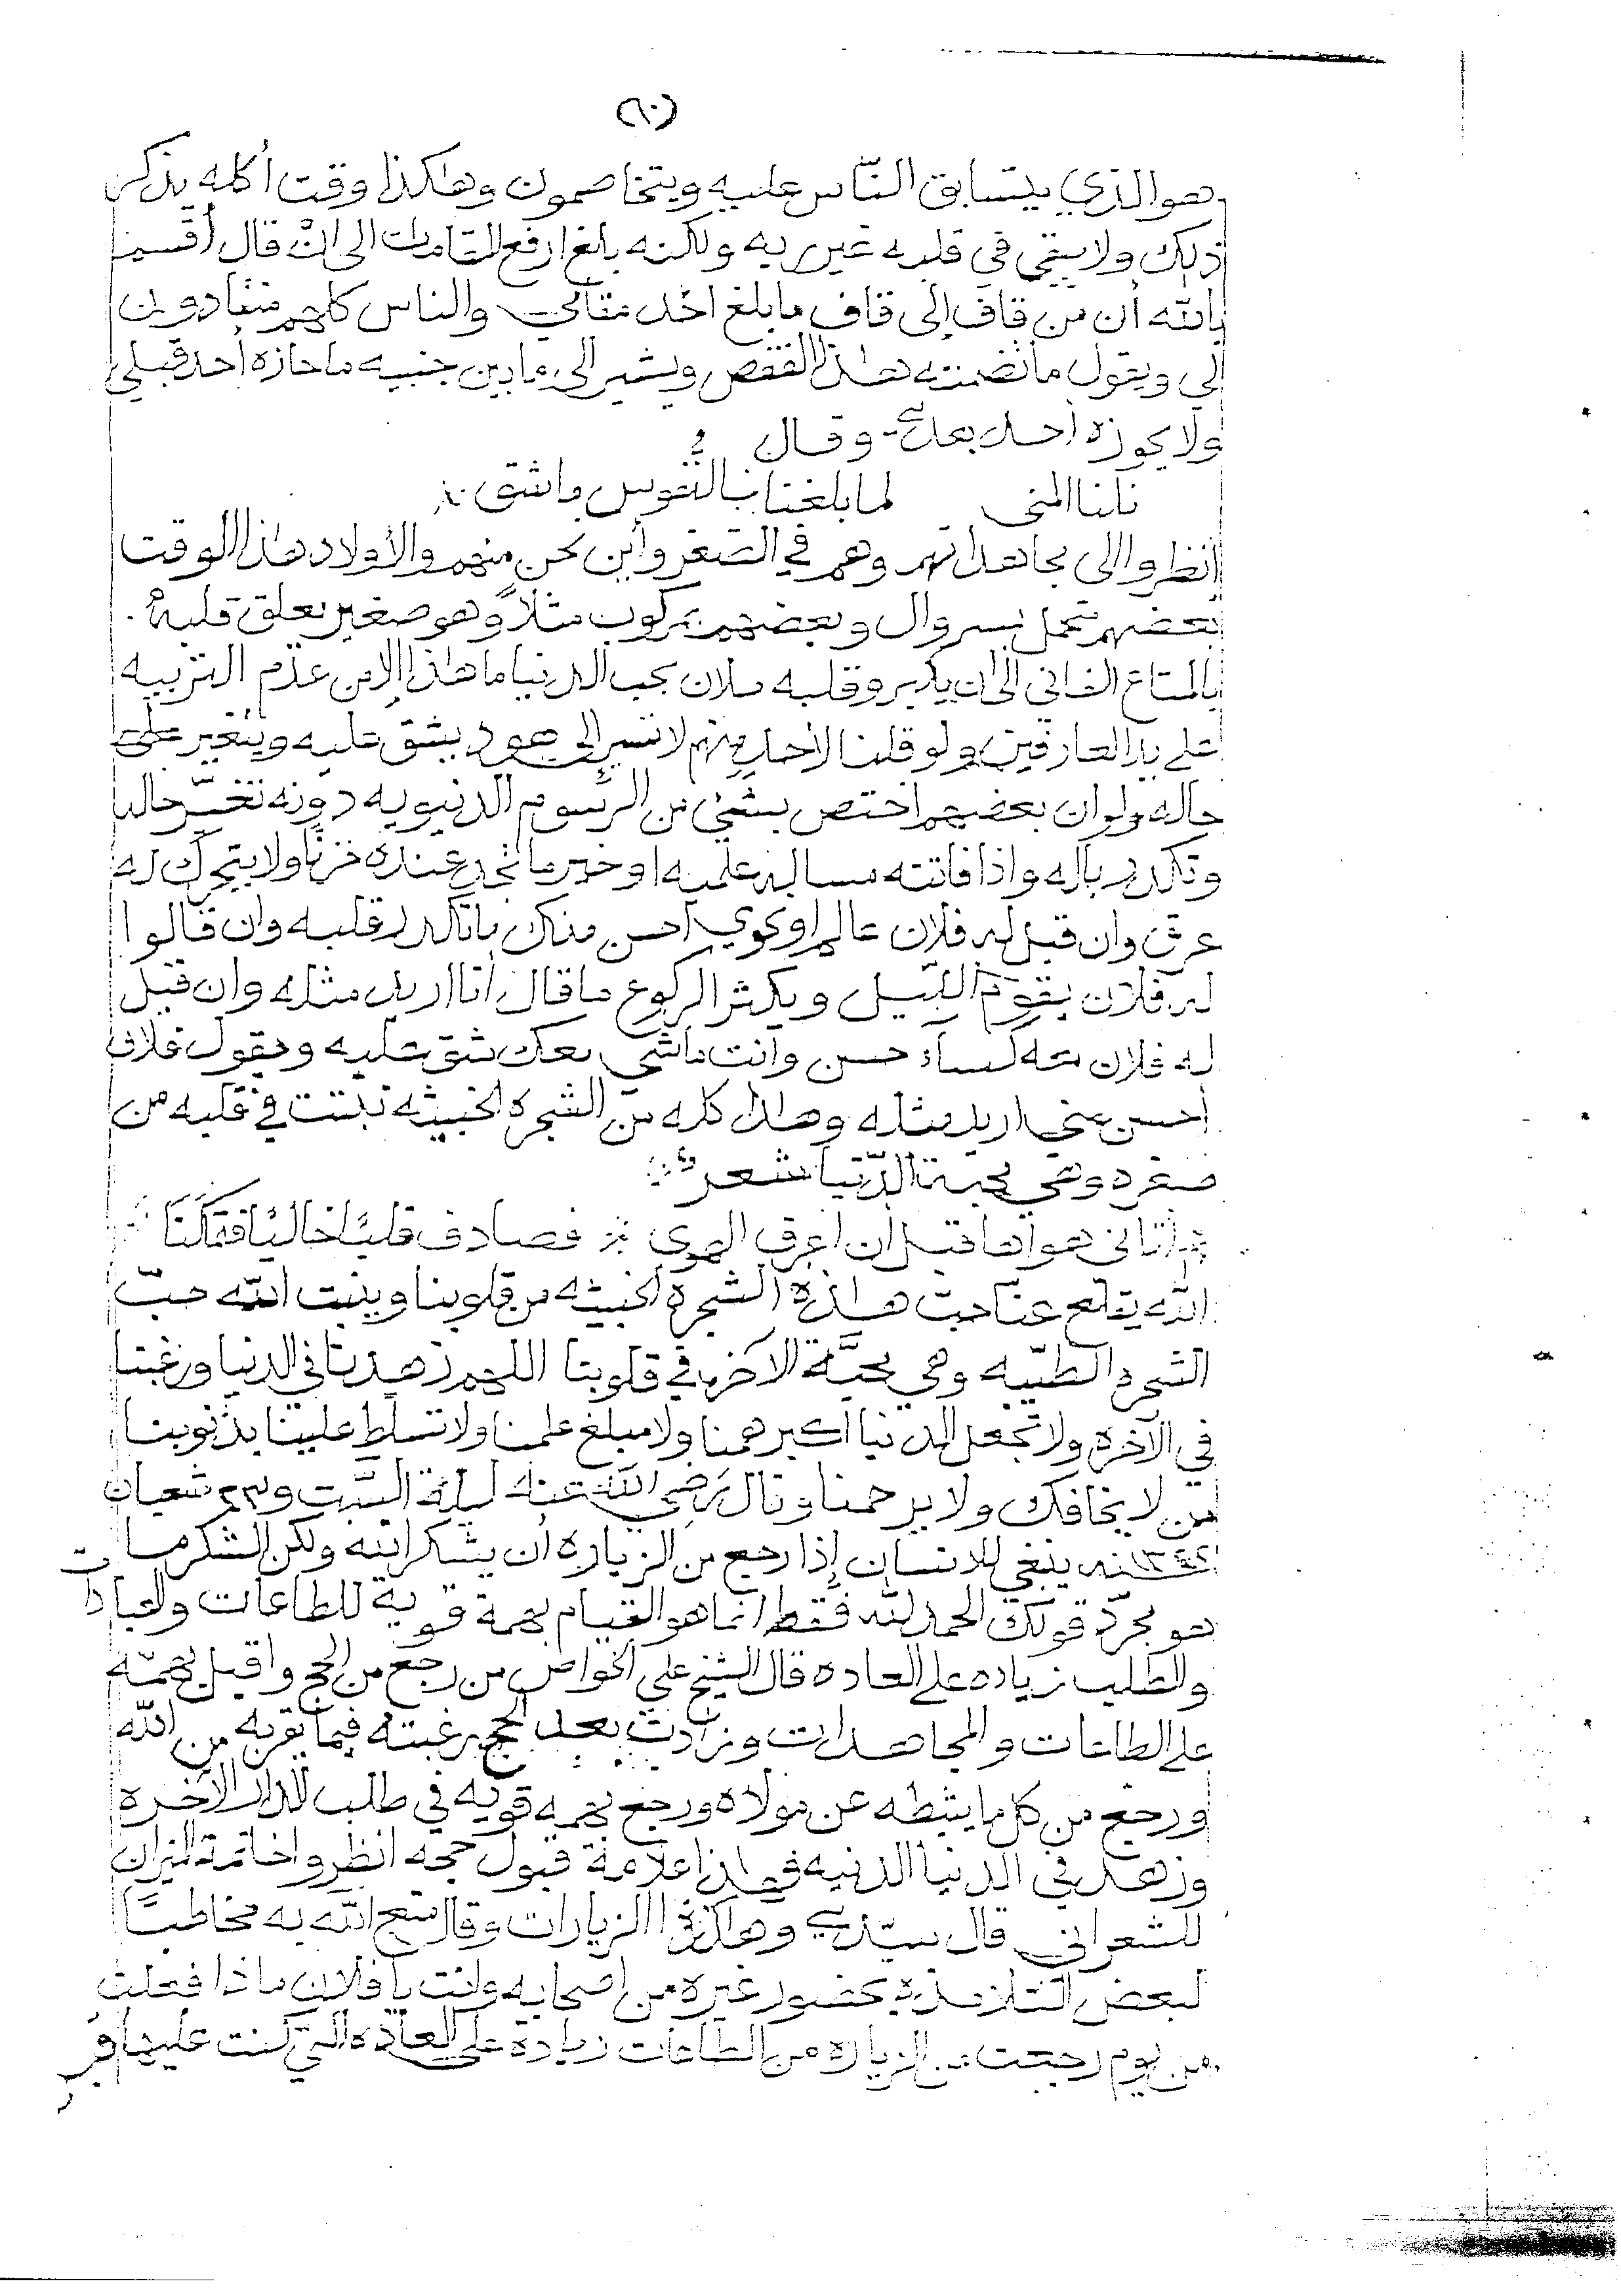 (٦٠)
هو الذي يتسابق النّاس عليه ويتخاصمون وهاكذا وقت أكله يذكر
ذلك ولا يبقى في قلبه غير ربه ولكنه بلغ ارفع المقامات الى انْ قال أقسم
بالله أن من قاف إلى قاف ما بلغ احد مقامي والناس كلهم منقادون
لي ويقول ما تضمنته هذا القفص ويشير الى ما بين جنبيه ما حازه أحد قبلي
ولا يحوزه أحد بعدي وقال
نلنا المنى لما بلغنا بالنّفوس ما شق
انظروا الى مجاهداتهم وهم في الصّغر وأين نحن منهم والأولاد هاذا الوقت
بعضهم تحمل بسروال وبعضهم بركوب مثلاً وهو صغير يعلق قلبه
بالمتاع الفاني الى ان يكبر وقلبه ملان بحب الدنيا ما هاذا إلا من عدم التربيه
على يد العارفين ولو قلنا لأحد منهم لا تسر الى هود يشق عليه ويتغير على
حاله ولو ان بعضهم اختص بشئ من الرّسوم الدنيويه دونه تغيّر حاله
وتكدر باله واذا فاتته مساله علميه او خير ما تجد عنده حزنًا ولا يتحرك له
عرق وان قيل له فلان عالم او نحوي أحسن منك ما تكدر قلبه وان قالوا
له فلان يقوم اللّيل ويكثر الركوع ما قال أنا اريد مثله وان قيل
له فلان معه كساء حسن وانت ماشي معك شق عليه ويقول فلان
أحسن مني اريد مثله وهاذا كله من الشجره الخبيثه نبتت في قلبه من
صغره وهي محبة الدّنيا شعر
اتاني هواها قبل ان اعرف الهوى فصادف قلبًا خاليًا فتمكّنا
الله يقلع عنا حبّ هاذه الشجره الخبيثه من قلوبنا وينبت الله حبّ
الشجره الطيّبه وهي محبَّة الآخره في قلوبنا اللهم زهدنا في الدنيا ورغبنا
في الآخره ولا تجعل الدنيا اكبر همنا ولا مبلغ علمنا ولا تسلّط علينا بذنوبنا
من لا يخافك ولا يرحمنا وقال رضي الله عنه ليلة السّبت شعبان
سنه ينبغي للانسان إذا رجع من الزياره أن يشكر الله ولكن الشكر ما
هو مجرّد قولك الحمد لله فقط انما هو القيام بهمة قوية للطاعات والعبادات
والطلب زياده على العاده قال الشيخ علي الخواص من رجع من الحج واقبل بهمّته
على الطاعات والمجاهدات وزادت بعد الحج رغبته فيما يقربه من الله
ورجع من كل ما يثبطه عن مولاه ورجع بهمه قويه في طلب الدار الآخره
وزهد في الدنيا الدنيه فهاذا علامة قبول حجه انظروا خاتمة الميزان
للشعراني قال سيّدي وهاكذا الزيارات وقال متع الله به مخاطبًا
لبعض التلامذه بحضور غيره من اصحابه وانت يا فلان ماذا فعلت
من يوم رجعت من الزياره من الطاعات زياده على العاده التي كنت عليها